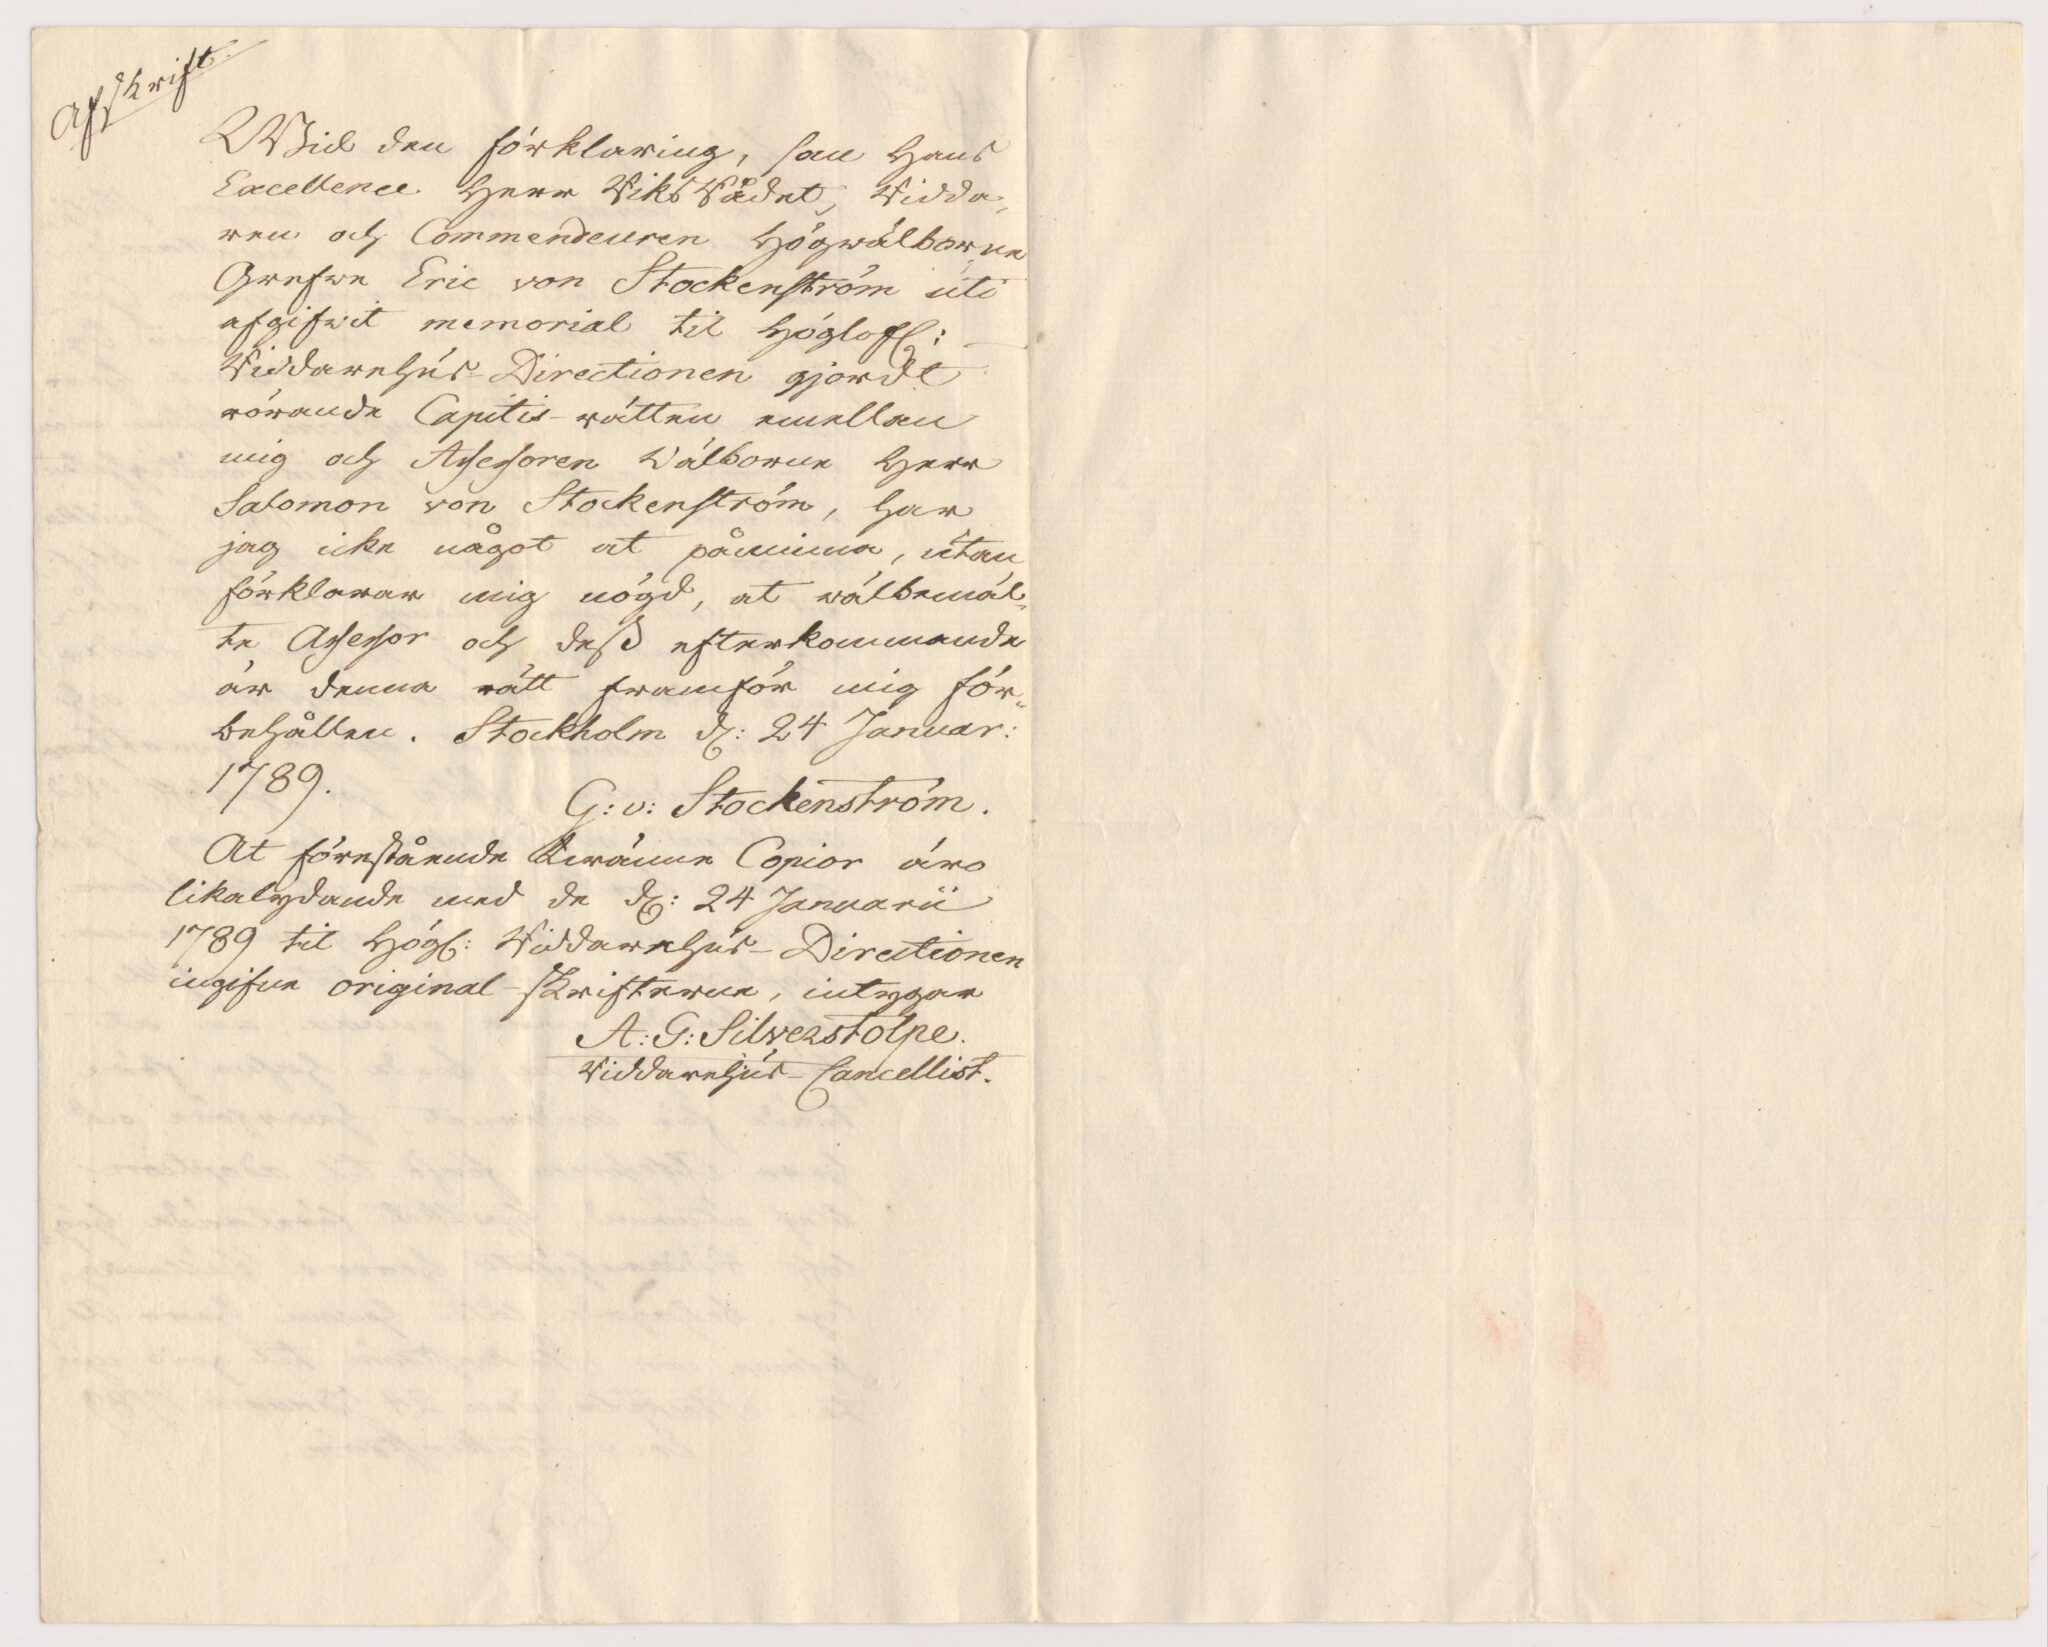 Afskrift.
Wid den förklaring, som Hans
Excellence Herr RiksRådet, Ridda„
ren och Commendeuren Högwälborne
Grefwe Eric von Stockenström uti
afgifwit memorial til Höglofl:
Riddarehus-Directionen gjordt
rörande Capitis-rätten emellan
mig och Assessoren Wälborne Herr
Salomon von Stockenström, har
jag icke något at påminna, utan
förklarar mig nögd, at wälbemäl„
te Assessor och dess efterkommande
är denna rätt framför mig för„
behållen. Stockholm d: 24 Januar:
1789.
G: v: Stockenström.
At förestående twänne Copior äro
likalydande med de d: 24 Januarii
1789 til Högl: Riddarehus-Directionen
ingifne original-skrifterne, intygar
A: G: Silverstolpe.
Riddarehus-Cancellist.